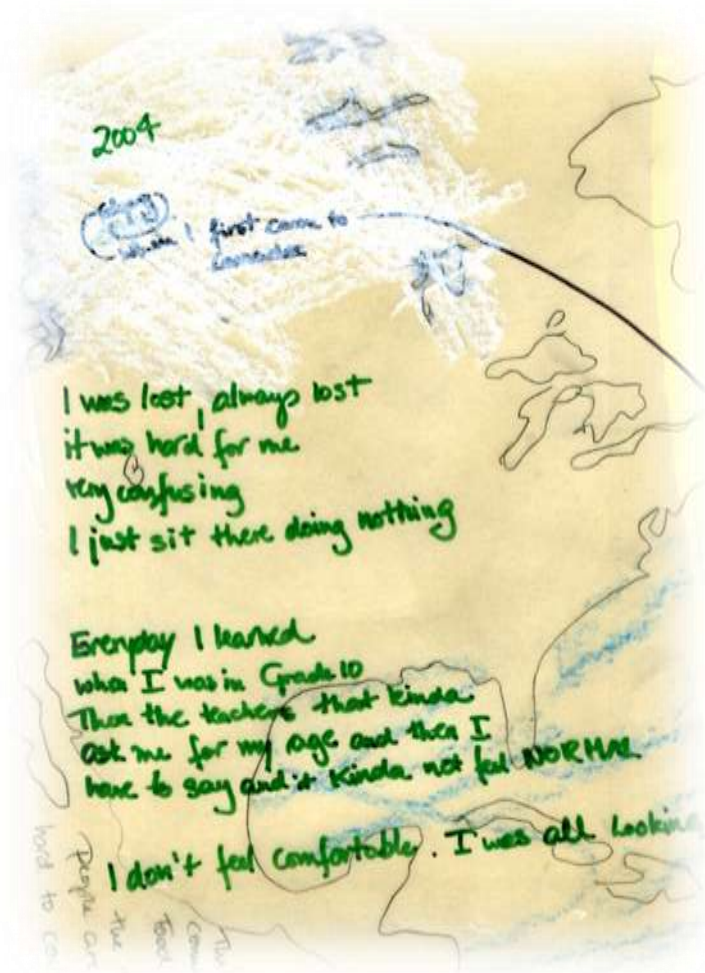 2004
when I first came to
Canada
I was lost, always lost
it was hard for me
very confusing
I just sit there doing nothing
Everyday I learned
when I was in Grade 10
Then the teachers that kinda
ask me for my age and then I
have to say and it kinda not feel NORMAL
I don't feel comfortable. I was all Lookin
People are
hard to
the
Food